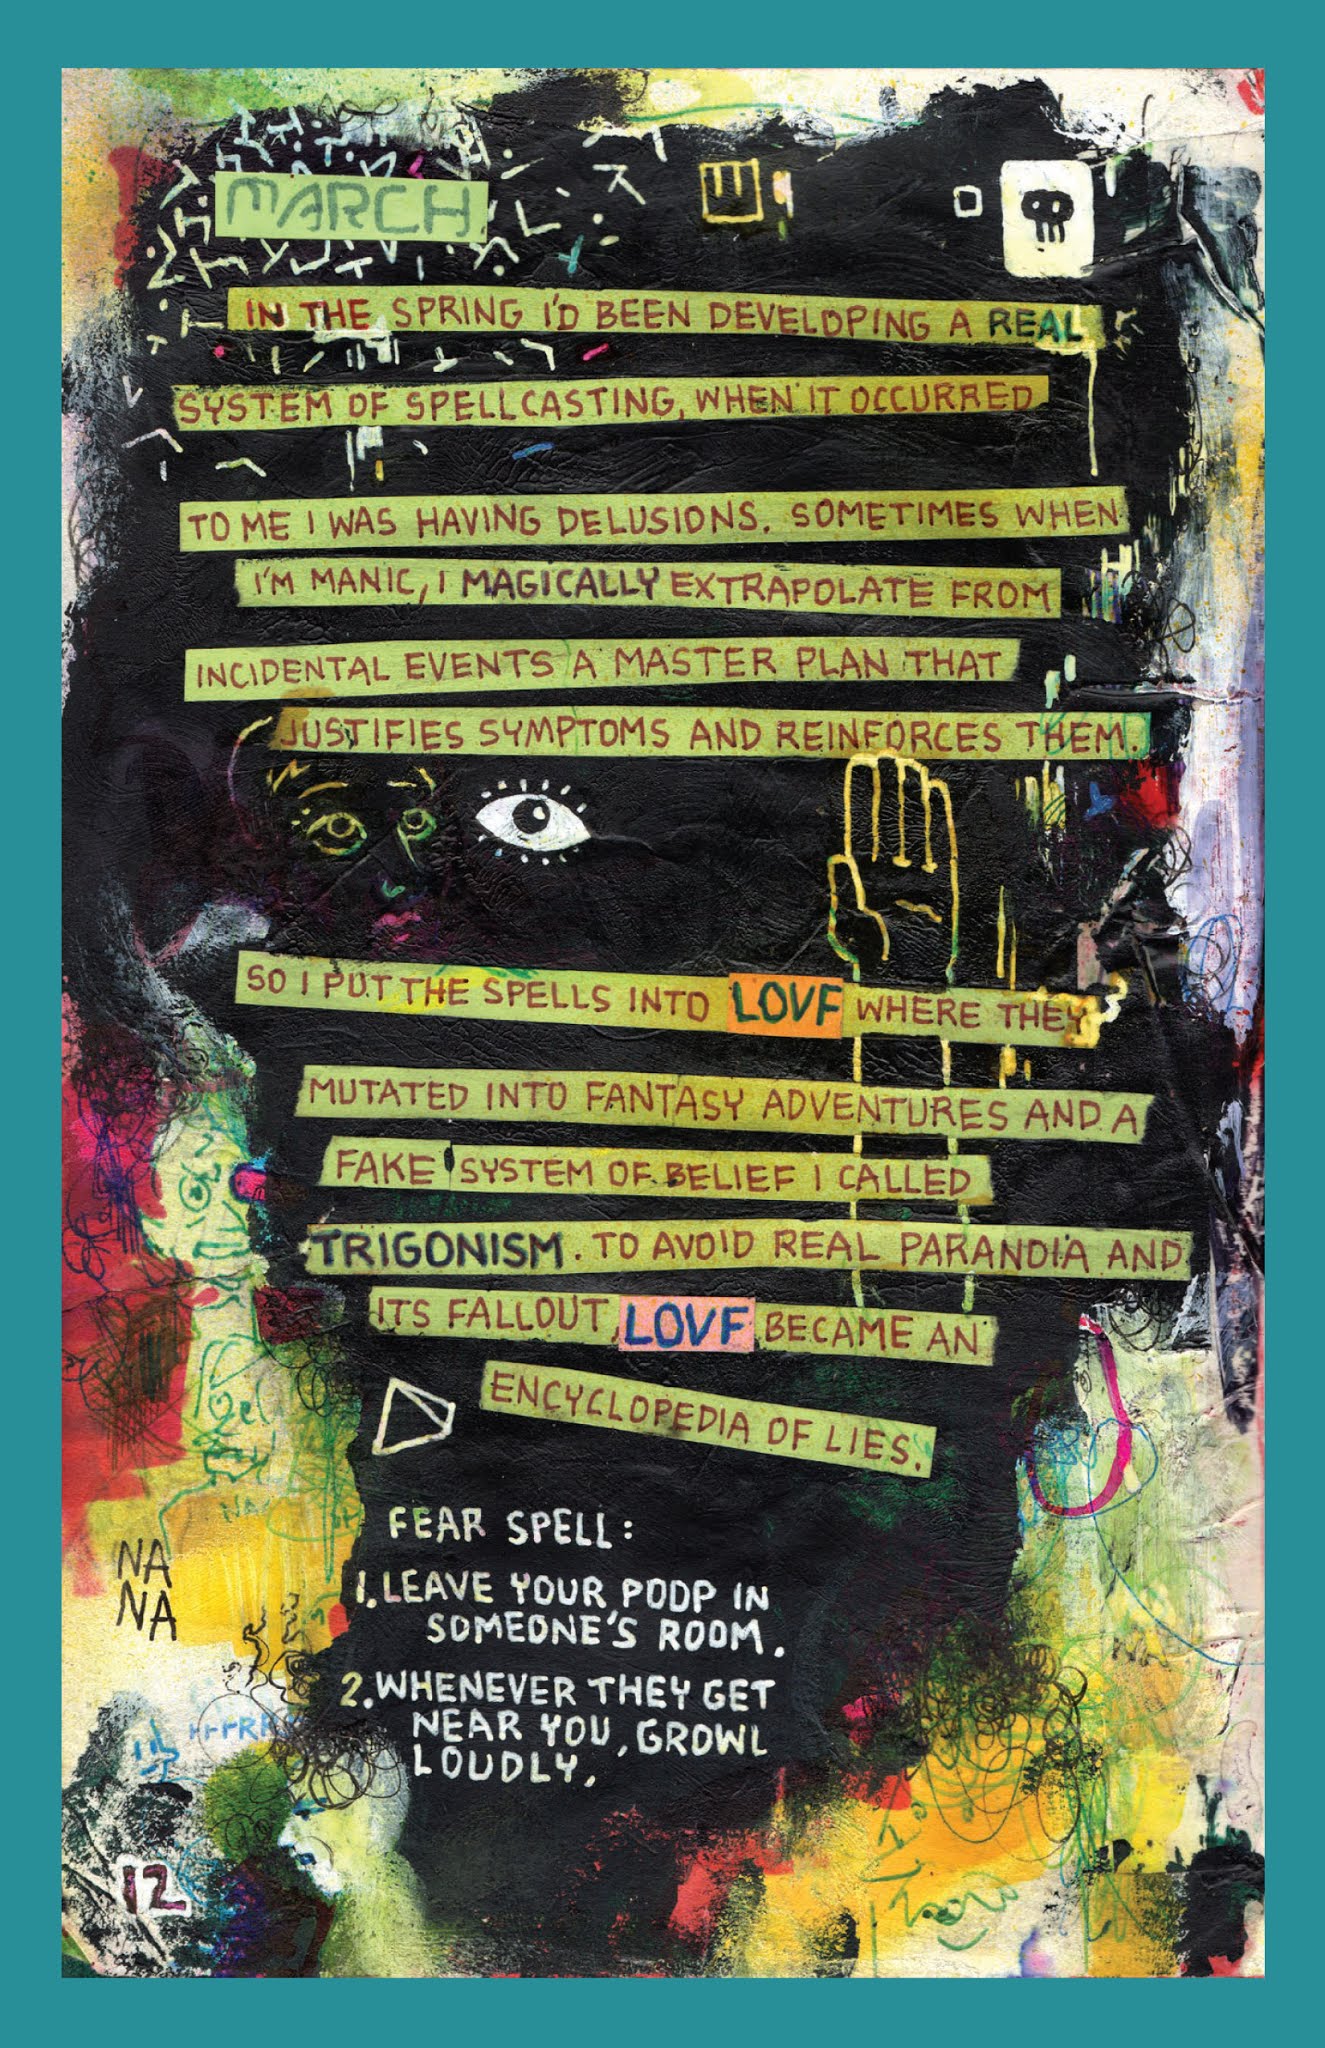 MARCH.
IN THE SPRING I'D BEEN DEVELOPING A REAL
SYSTEM OF SPELLCASTING, WHEN IT OCCURRED
TO ME I WAS HAVING DELUSIONS. SOMETIMES WHEN
I'M MANIC, I MAGICALLY EXTRAPOLATE FROM
INCIDENTAL EVENTS A MASTER PLAN THAT
JUSTIFIES SYMPTOMS AND REINFORCES THEM.
SO I PUT THE SPELLS INTO LOVF WHERE THEY
MUTATED INTO FANTASY ADVENTURES AND A
FAKE SYSTEM OF BELIEF I CALLED
TRIGONISM. TO AVOID REAL PARANOIA AND
ITS FALLOUT, LOVF BECAME AN
ENCYCLOPEDIA OF LIES.
FEAR SPELL:
1. LEAVE YOUR POOP IN
SOMEONE'S ROOM.
2. WHENEVER THEY GET
NEAR YOU, GROWL
LOUDLY.
NA
NA
12